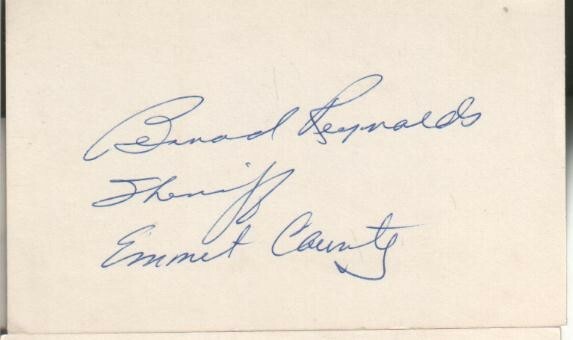 Bernard Reynolds
Sheriff
Emmet County